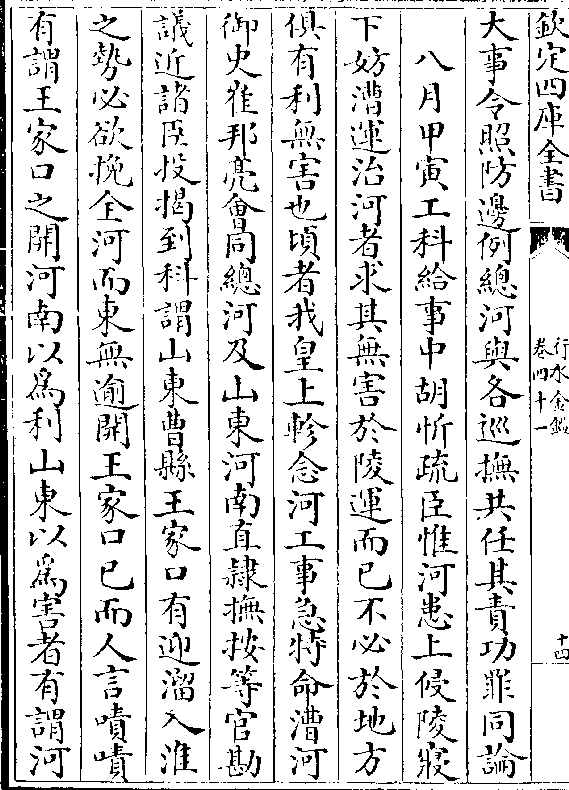 欽定四庫全書
行水金鑑
卷四十一
十四
大事令照防邊例總河與各巡撫共任其責功罪同論
八月甲寅工科給事中胡忻疏臣惟河患上侵陵寢
下妨漕運治河者求其無害於陵運而已不必於地方
俱有利無害也頃者我皇上軫念河工事急特命漕河
御史崔邦亮會同總河及山東河南直隸撫按等官勘
議近諸臣投揭到科謂山東曹縣王家口有迎溜入淮
之勢必欲挽全河而東無逾開王家口已而人言嘖嘖
有謂王家口之開河南以為利山東以為害者有謂河